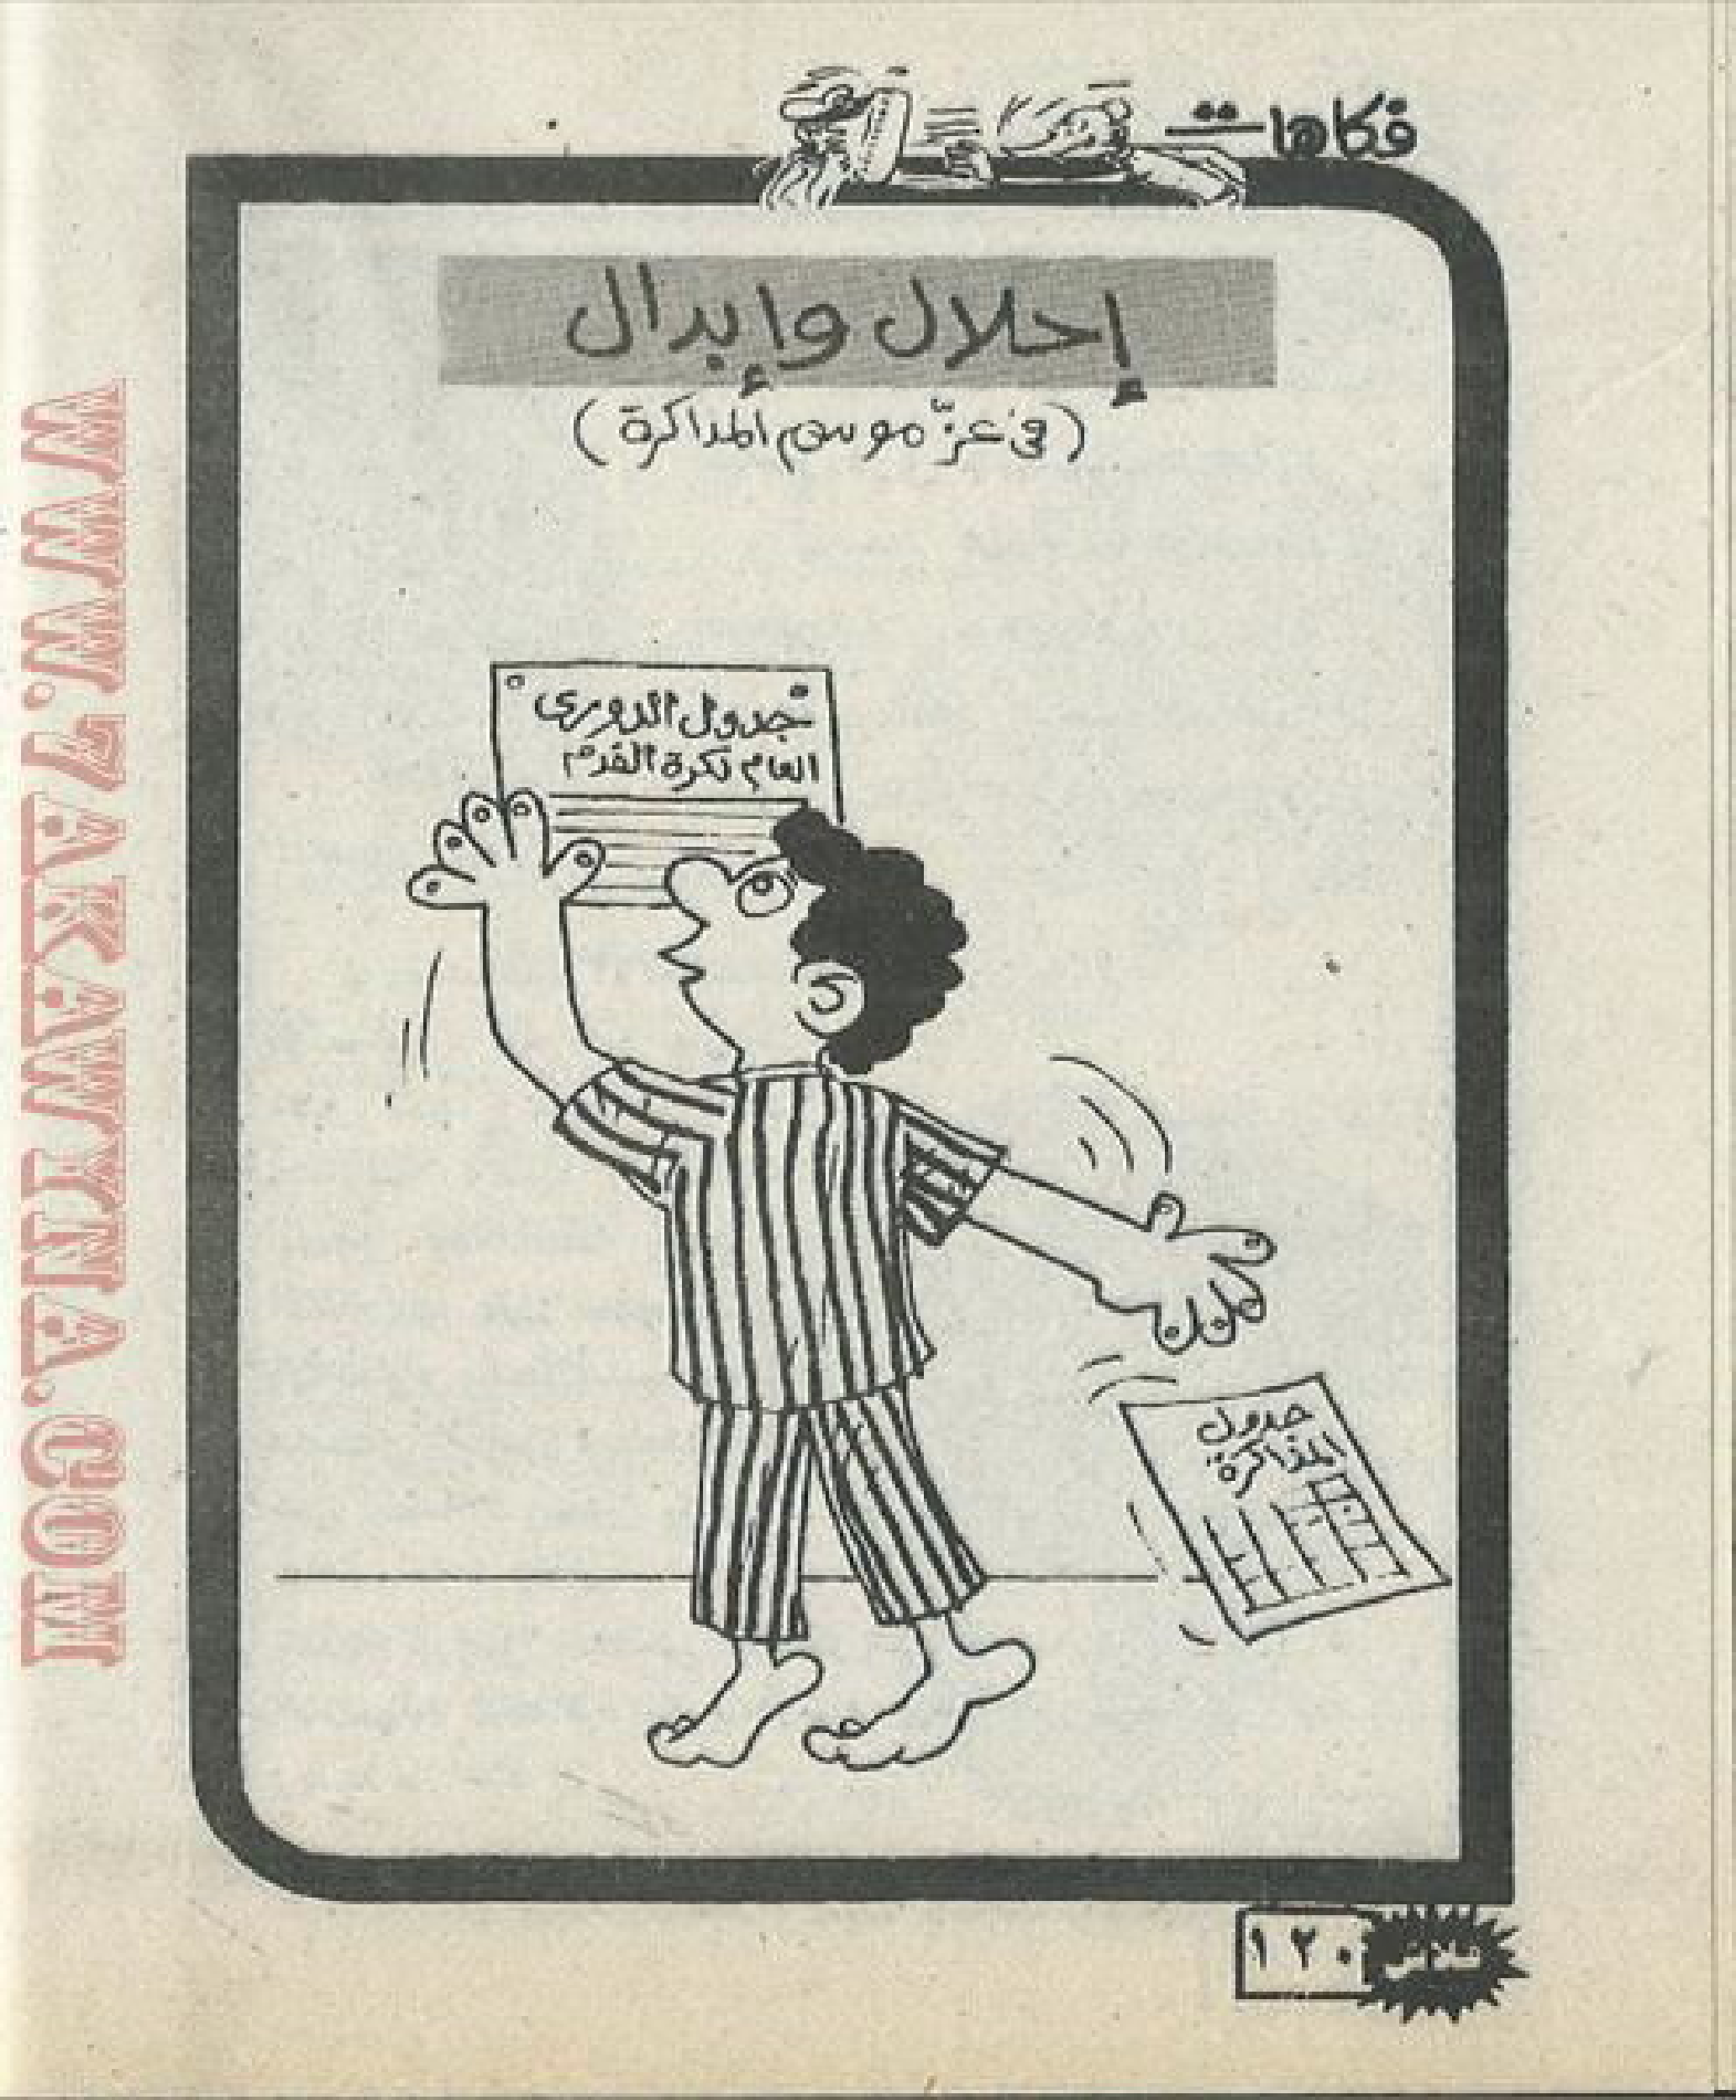 فكاهات
إحلال وإبدال
(فى عزّ موسم المذاكرة)
جدول الدورى
العام لكرة القدم
جدول
المذاكرة
فلاش
١٢٠
WWW.7AKAWITNA.COM